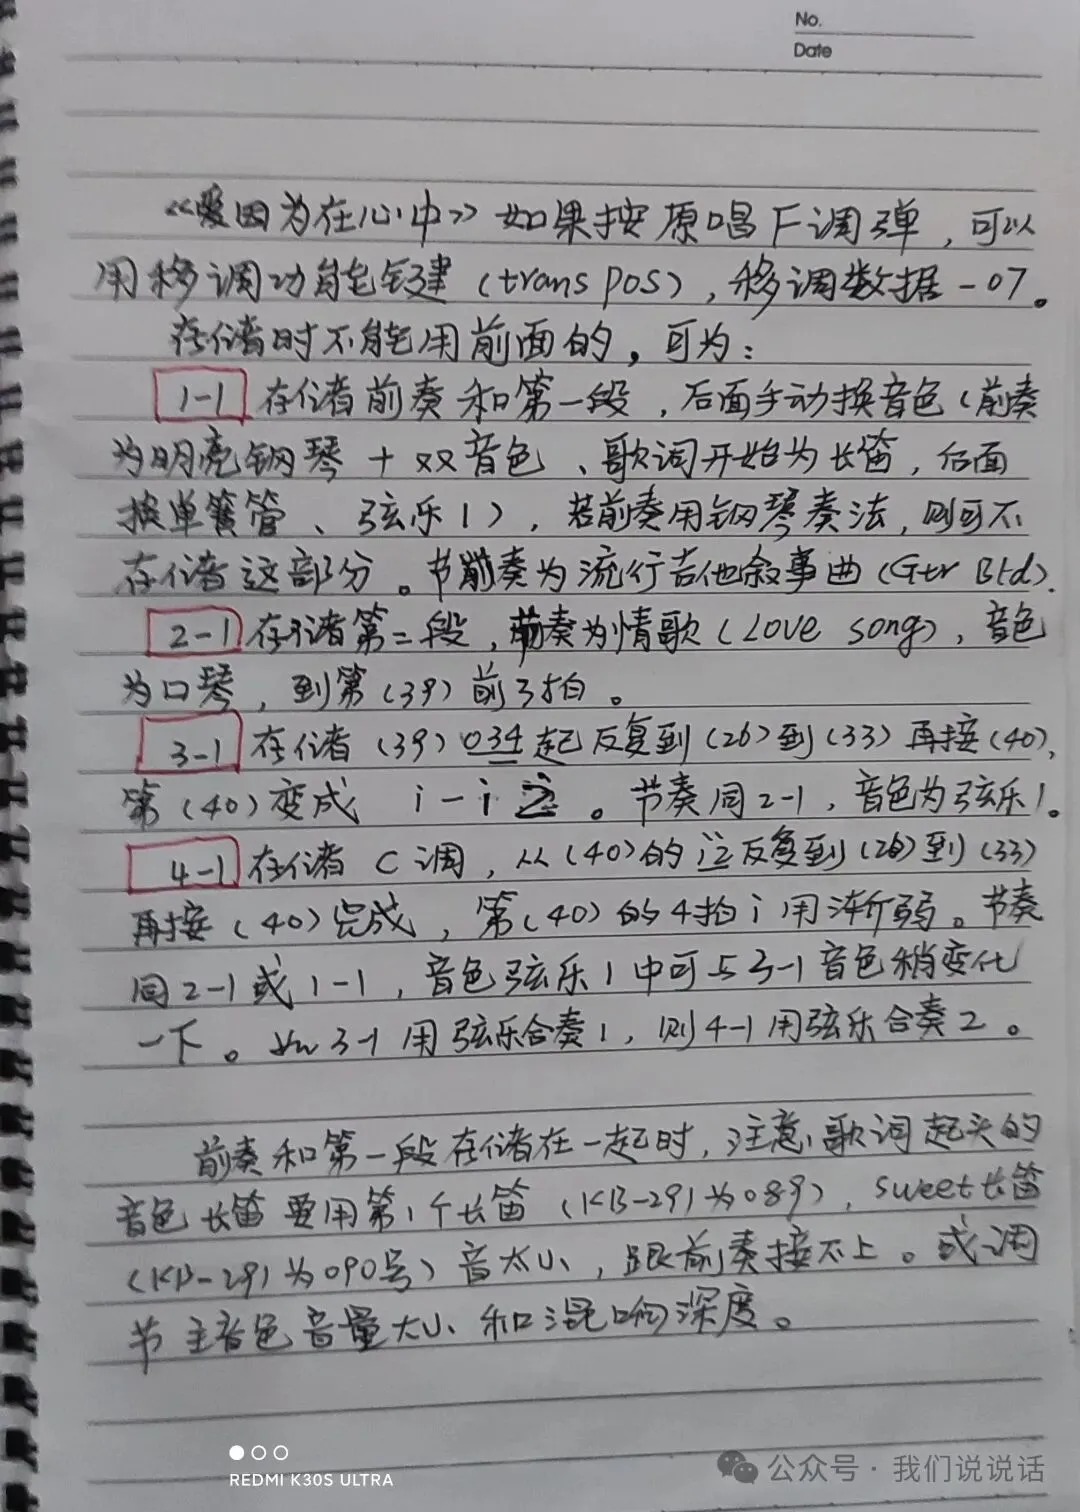 No.
Date
《爱因为在心中》如果按原唱F调弹，可以
用移调功能键（transpos），移调数据-07。
存储时不能用前面的，可为：
1-1 存储前奏和第一段，后面手动换音色（前奏
为明亮钢琴+双音色、歌词开始为长笛，后面
按单簧管、弦乐1），若前奏用钢琴奏法，则可不
存储这部分。节奏为流行吉他叙事曲（Gtr Bld）.
2-1 存储第二段，节奏为情歌（Love song），音色
为口琴，到第（39）前3拍。
3-1 存储（39）034起反复到（26）到（33）再接（40），
第（40）变成 i-i 2。节奏同2-1，音色为弦乐1。
4-1 存储C调，从（40）的i2反复到（26）到（33）
再接（40）完成，第（40）的4拍i用渐弱。节奏
同2-1或1-1，音色弦乐1中可与3-1音色稍变化
一下。如3-1用弦乐合奏1，则4-1用弦乐合奏2。
前奏和第一段存储在一起时，注意歌词起头的
音色长笛要用第1个长笛（KB-291为089），sweet长笛
（KB-291为090号）音太小，跟前奏接不上。或调
节主音色音量大小和混响深度。
REDMI K30S ULTRA
公众号·我们说说话